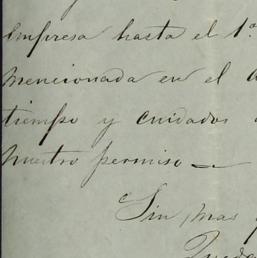 Empresa hasta el 1º
mencionada en el
tiempo y cuidados
nuestro permiso
Sin mas
Queda